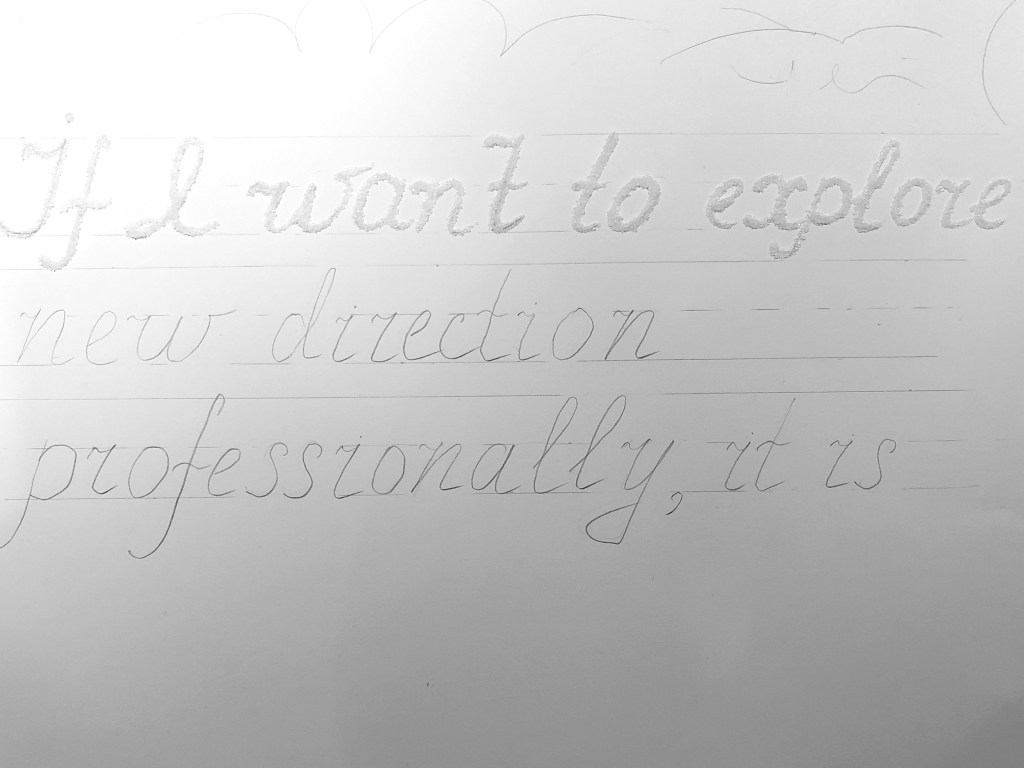 If I want to explore
new direction
professionally, it is